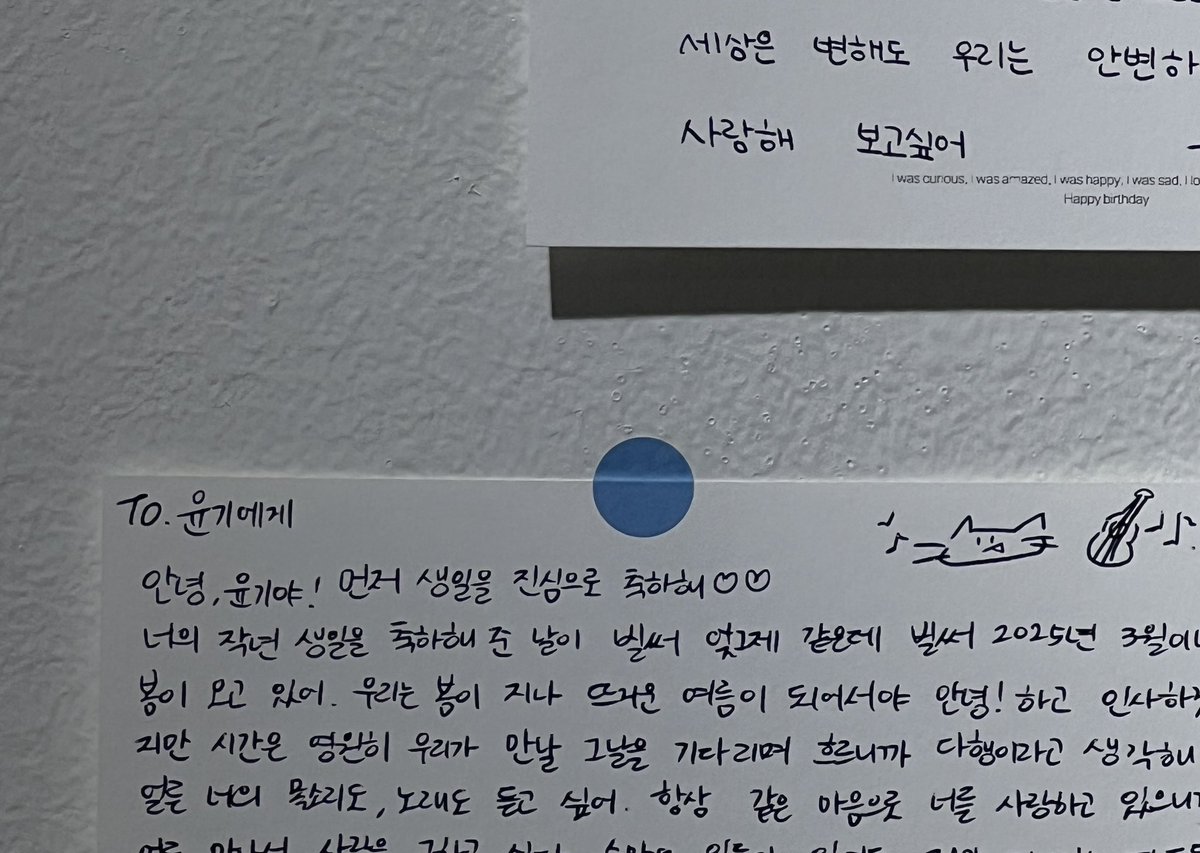 세상은 변해도 우리는 안변하
사랑해 보고싶어
I was curious, I was amazed, I was happy, I was sad, I lo
Happy birthday
TO. 윤기에게
안녕, 윤기야! 먼저 생일을 진심으로 축하해♡♡
너의 작년 생일을 축하해 준 날이 벌써 엊그제 같은데 벌써 2025년 3월이
봄이 오고 있어. 우리는 봄이 지나 뜨거운 여름이 되어서야 안녕! 하고 인사하겠
지만 시간은 영원히 우리가 만날 그날을 기다리며 흐르니까 다행이라고 생각해
얼른 너의 목소리도, 노래도 듣고 싶어. 항상 같은 마음으로 너를 사랑하고 있으니